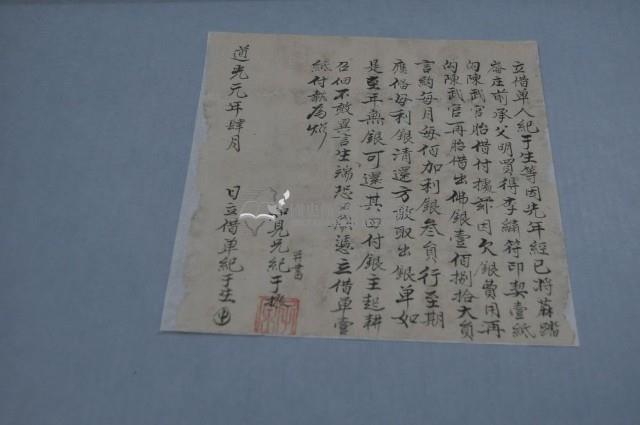 立借单人紀于生等因先年經已將蔴踏
庵庄前承父明買得李鏽符印契壹紙
向陳武官胎借付據茲因欠銀費用再
向陳武官再胎借出佛銀壹佰捌拾大員
言約每月每佰加利銀叁員行至期
應備每利銀清還方敢取出銀单如
是至年無銀可還其田付銀主起耕
召佃不敢異言生端恐口無憑立借单壹
紙付執為炤
并書
知見兄紀于
道光元年肆月 日立借单紀于生